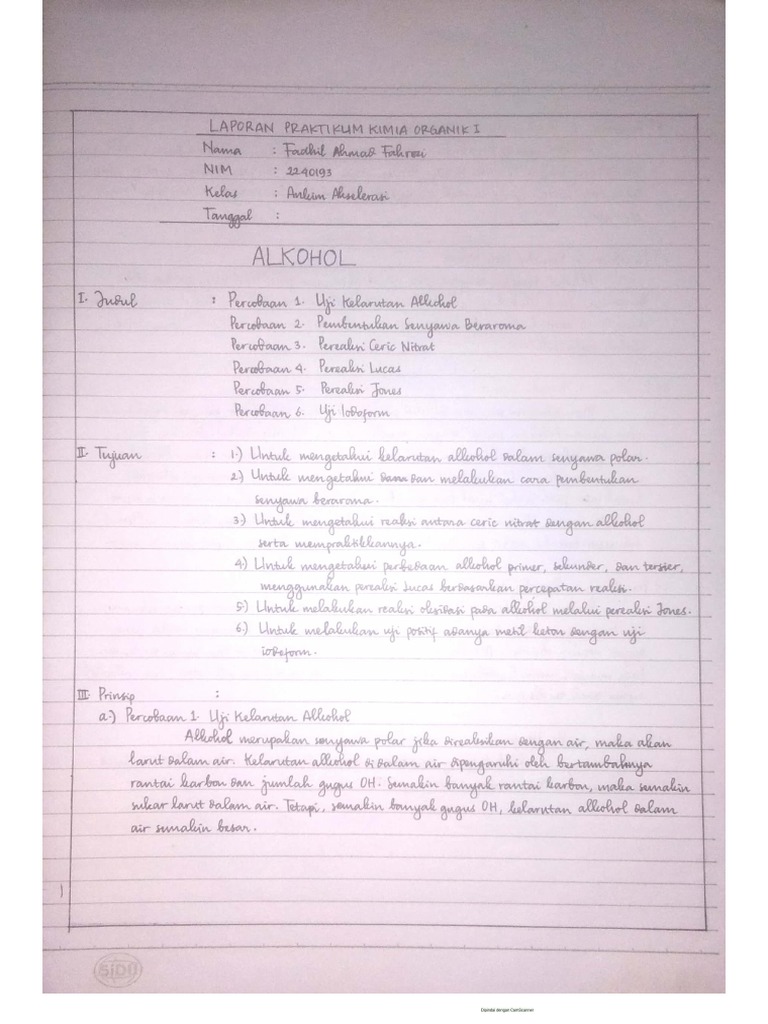 LAPORAN PRAKTIKUM KIMIA ORGANIK I
Nama : Fadhil Ahmad Fahrozi
NIM : 2240193
Kelas : Ankim Akselerasi
Tanggal :
ALKOHOL
I. Judul : Percobaan 1. Uji Kelarutan Alkohol
Percobaan 2. Pembentukan Senyawa Beraroma
Percobaan 3. Pereaksi Ceric Nitrat
Percobaan 4. Pereaksi Lucas
Percobaan 5. Pereaksi Jones
Percobaan 6. Uji Iodoform
II. Tujuan : 1.) Untuk mengetahui kelarutan alkohol dalam senyawa polar.
2.) Untuk mengetahui dan melakukan cara pembentukan
senyawa beraroma.
3.) Untuk mengetahui reaksi antara ceric nitrat dengan alkohol
serta mempraktikkannya.
4) Untuk mengetahui perbedaan alkohol primer, sekunder, dan tersier,
menggunakan pereaksi lucas berdasarkan percepatan reaksi.
5) Untuk melakukan reaksi oksidasi pada alkohol melalui pereaksi Jones.
6.) Untuk melakukan uji positif adanya metil keton dengan uji
iodoform.
III. Prinsip :
a.) Percobaan 1. Uji Kelarutan Alkohol
Alkohol merupakan senyawa polar jika direaksikan dengan air, maka akan
larut dalam air. Kelarutan alkohol di dalam air dipengaruhi oleh bertambahnya
rantai karbon dan jumlah gugus OH. Semakin banyak rantai karbon, maka semakin
sukar larut dalam air. Tetapi, semakin banyak gugus OH, kelarutan alkohol dalam
air semakin besar.
1
SIDU
Dipindai dengan CamScanner